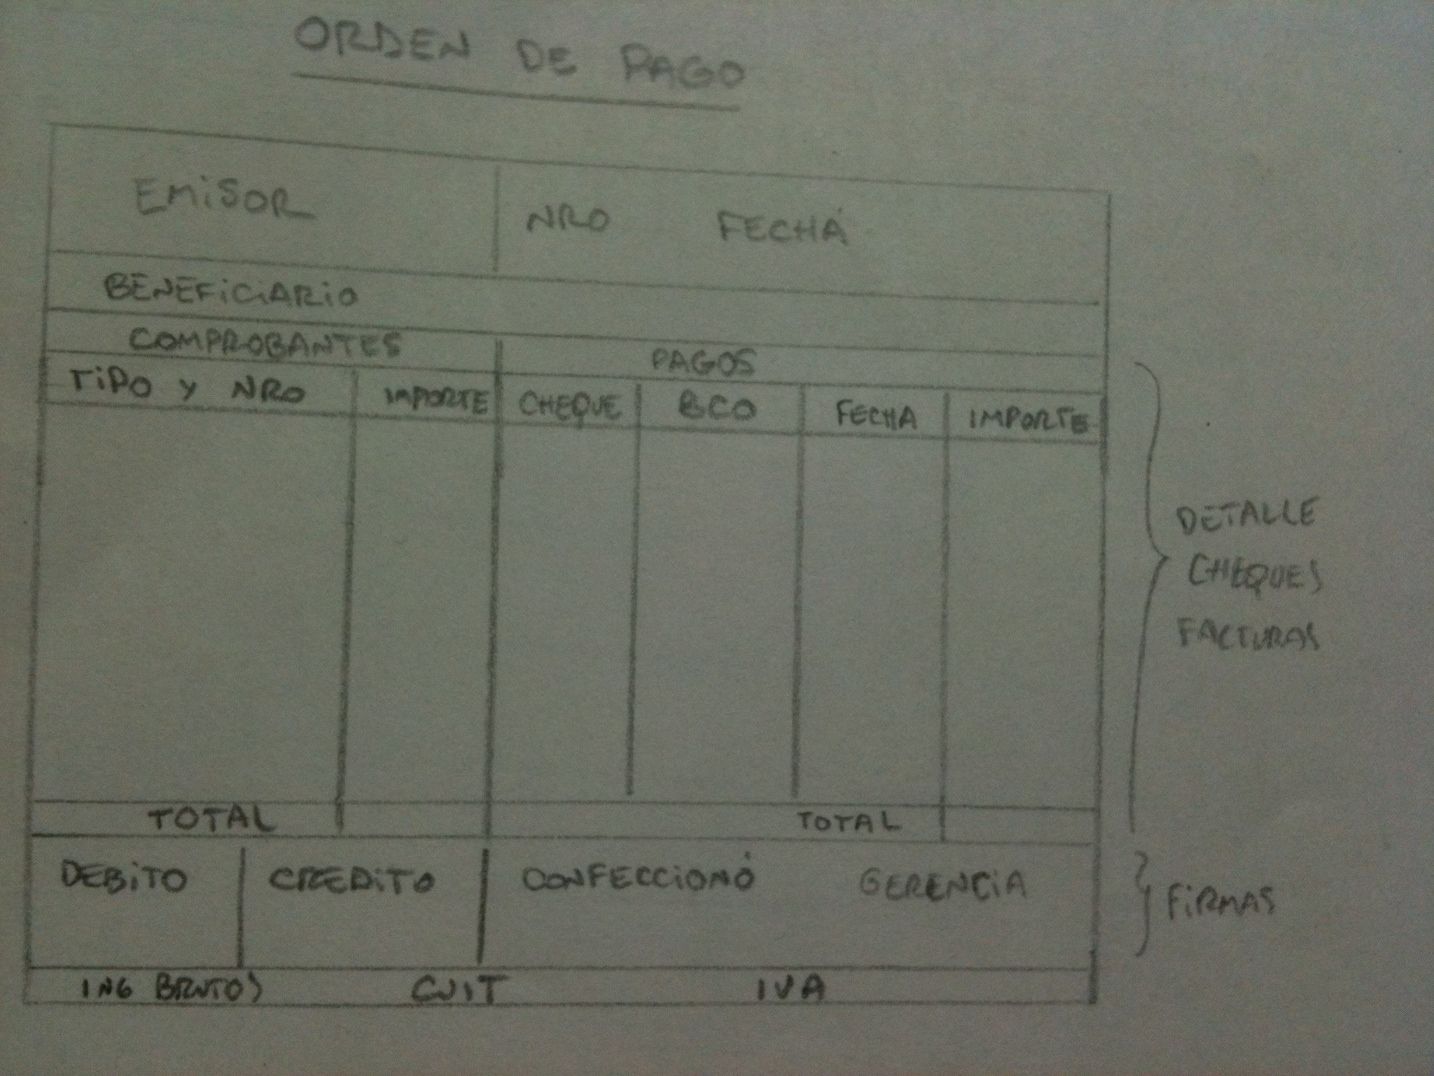 ORDEN DE PAGO
EMISOR
NRO FECHA
BENEFICIARIO
COMPROBANTES
PAGOS
TIPO Y NRO IMPORTE CHEQUE BCO FECHA IMPORTE
DETALLE
CHEQUES
FACTURAS
TOTAL TOTAL
DEBITO CREDITO CONFECCIONÓ GERENCIA
FIRMAS
ING BRUTOS CUIT IVA